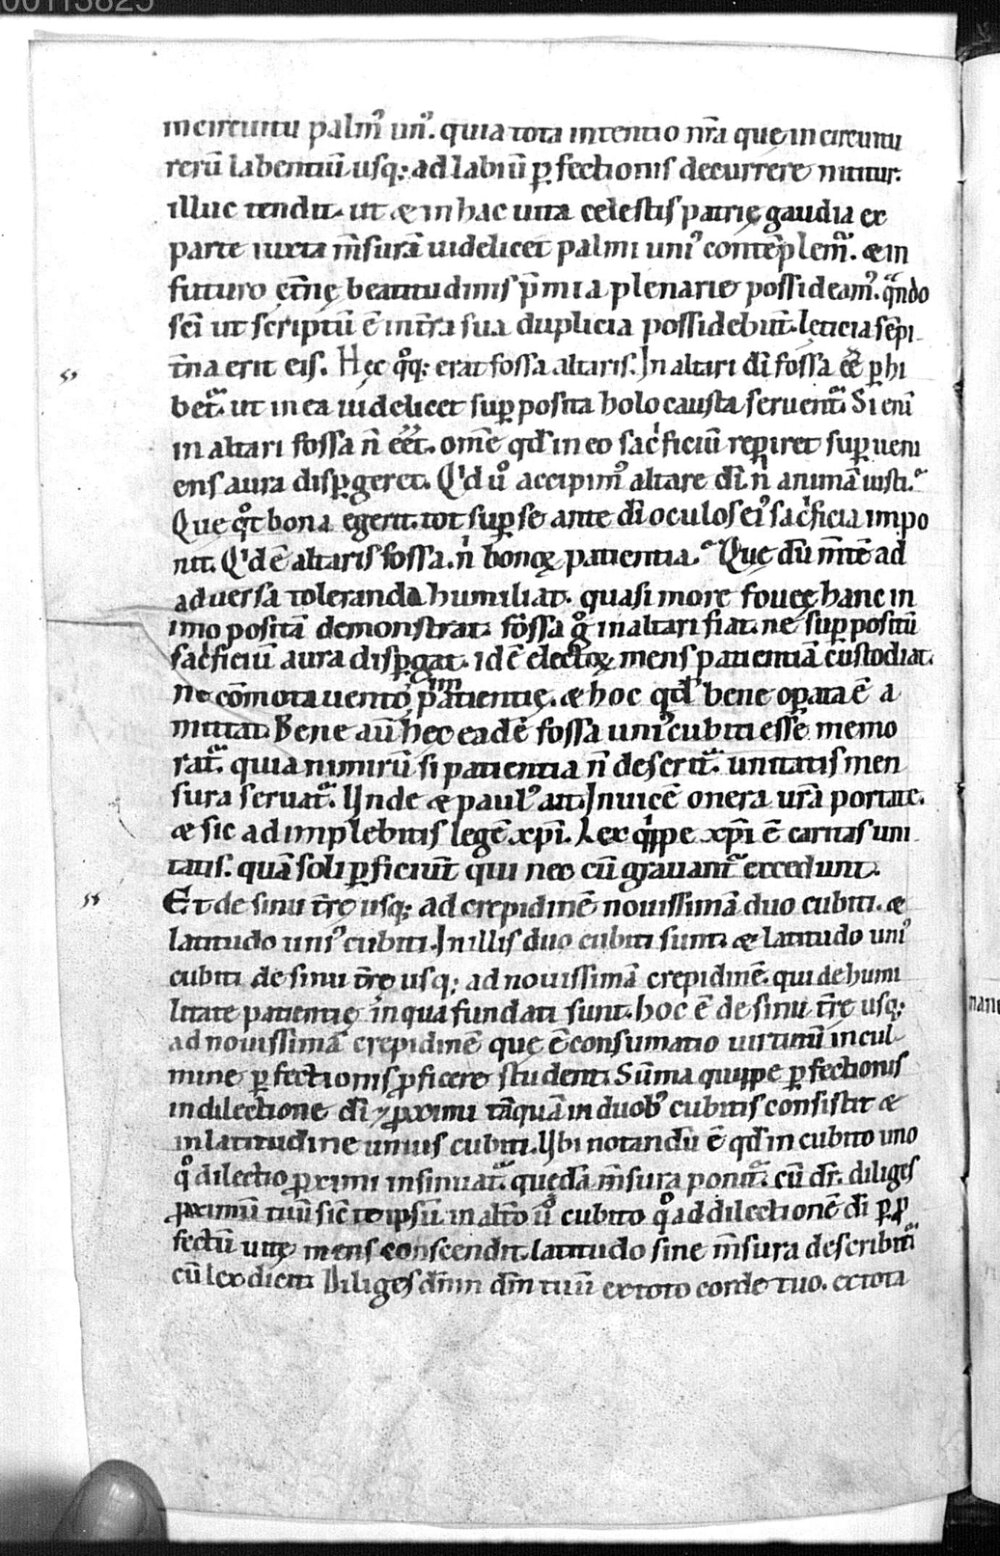 00113825
in circuitu palm᾿ un᾿. quia tota intentio nr̄a quę in circuitu
rerū labentiū usq; ad labiū ꝑfectionis decurrere nititur.
illuc tendit. ut & in hac uita celestis patrię gaudia ex
parte iuxta m̄surā uidelicet palmi uni᾿ contēplem᷑. & in
futuro et̄nę beatitudinis p̄mia plenarie possideam᾿. qn̄do
sc̄i ut scriptū ē in tr̄a sua duplicia possidebūt. lęticia sēpi
t̄na erit eis. Hęc qͦq; erat fossa altaris. In altari dī fossa ēe ꝑhi
bet᷑. ut in ea uidelicet suꝑposita holocausta seruent᷑. Si eni
in altari fossa n̄ eēt. om̄e qd̄ in eo sacͥficiū reꝑiret suꝑueni
ens aura disꝑgeret. Qͥd uͦ accipim᾿ altare dī. nͥ animā iusti.
Que qͦt bona egerit. tot suꝑ se ante dī oculos ei᾿ sacͥficia impo
nit. Qͥd ē altaris fossa. nͥ bonoꝝ patientia. Quę dū m̄tē ad
aduersa toleranda humiliat. quasi more foueę hanc in
imo positā demonstrat. fossa gͦ in altari fiat. ne suꝑpositū
sacͥficiū aura disꝑgat. id ē electoꝝ mens patientiā custodiat.
ne cōmota uento īpatientię. & hoc qd̄ bene oꝑata ē a
mittat. Bene au᷑ hec eadē fossa uni᾿ cubiti esse memo
rat᷑. quia nimirū si patientia n̄ deserit᷑. unitatis men
sura seruat᷑. Unde & paul᾿ ait. Inuicē onera ur̄a portate.
& sic adimplebitis legē xp̄i. Lex qͥppe xp̄i ē caritas uni
tatis. quā soli ꝑficiūt qui nec cū grauant᷑ excedunt.
Et de sinu tr̄ę usq; ad crepidinē nouissimā duo cubiti. &
latitudo uni᾿ cubiti. In illis duo cubiti sunt & latitudo uni᾿
cubiti de sinu tr̄ę usq; ad nouissimā crepidinē. qui de humi
litate patientię in qua fundati sunt. hoc ē de sinu tr̄ę usq;
ad nouissimā crepidinē que ē consumatio uirtutū in cul
mine ꝑfectionis ꝓficere student. Sūma quippe ꝑfectionis
in dilectione dī ⁊ ꝓximi tāquā in duob᾿ cubitis consistit &
in latitudine unius cubiti. Ubi notandū ē qd̄ in cubito uno
qͦ dilectio ꝓximi insinuat᷑. quędā m̄sura ponit᷑. cū dr̄. diliges
ꝓximū tuū sic̄ te ipsū. in alt̄o uͦ cubito qͦ ad dilectionē dī ꝑ ꝓ
fectū uitę mens conscendit. latitudo sine m̄sura describit᷑
cū lex dicit. Diliges dn̄m dm̄ tuū ex toto corde tuo. ex tota